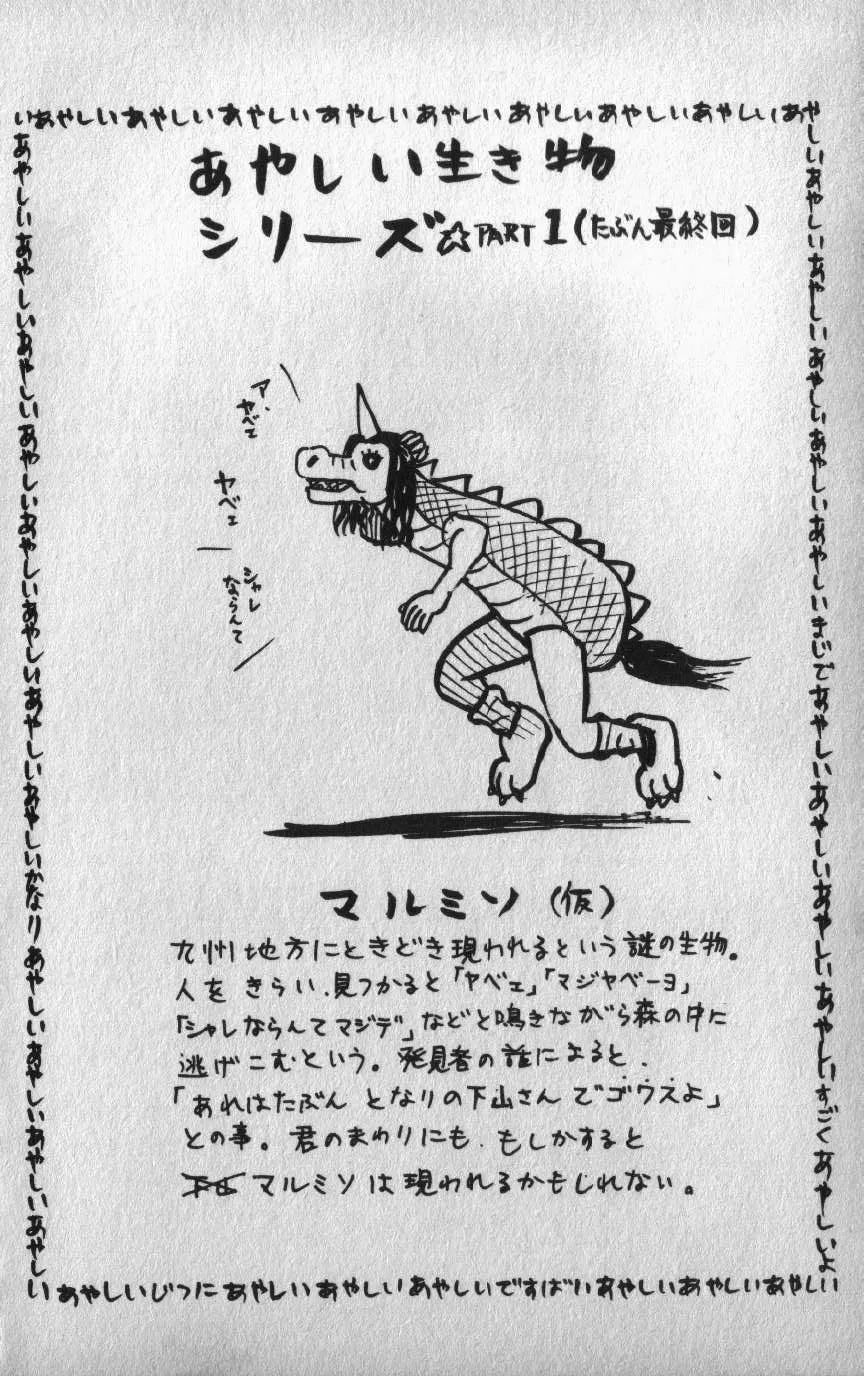 いあやしいあやしいあやしいあやしいあやしいあやしいあやしいあやしいあや
しいあやしいあやしいあやしいあやしいあやしいまじであやしいあやしいあやしいあやしいすごくあやしいよ
あやしいあやしいあやしいあやしいあやしいあやしいあやしいあやしいかなりあやしいあやしいあやしいあやしい
あやしい生き物
シリーズ☆PART1(たぶん最終回)
ア、
ヤベェ
ヤベェ
シャレ
ならんて
マルミソ(仮)
九州地方にときどき現われるという謎の生物。
人をきらい、見つかると「ヤベェ」「マジヤベーヨ」
「シャレならんてマジデ」などと鳴きながら森の中に
逃げこむという。発見者の誰によると、
「あれはたぶんとなりの下山さんでゴワスよ」
との事。君のまわりにも、もしかすると
マルミソは現われるかもしれない。
あやしいじつにあやしいあやしいあやしいですばいあやしいあやしいあやしい